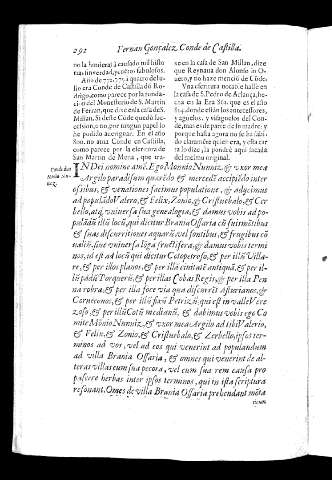 292 Fernan Gonçalez Conde de Castilla.
tas inverdad, y otros fabulosos.
Año de 772. 775 a quatro de Ju-
lio era Conde de Castilla dō Ro-
drigo, como parece por la funda-
cion del Monesterio de S. Martin
de Ferran, que dize es la casa de S.
Millan. Si deste Cōde quedò suc-
cession, o no, por ningun papel lo
he podido averiguar. En el año
800. no avia Conde en Castilla,
como parece por la escritura de
San Martin de Mena, que tra-
xe en la casa de San Millan, dize
que Reynava don Alonso in O-
veto, y no haze mencio de Cōde.
Una escritura notable hallè en
la casa de S. Pedro de Arlança, he-
cha en la Era 862. que es el año
824. donde estan los ascendientes,
y aguelos, y visaguelos del Con-
de, mas es de parte de su madre: y
porque hasta agora no se ha sabi-
do claramēte quien era, y ella cau-
sa lo dize, la pondrè aqui sacada
del mesmo original.
IN Dei nomine amē. Ego Monio Nunniz, & vxor mea
Argilo paradisum querēdo & mercedē accipiēdo inter
ossibus, & venationes facimus populatione, & adducimus
ad populādo Valero, & Felix, Zonio, & Cristuebalo, & Cer-
bello, atq; vniversa sua genealogia, & damus vobis ad po-
pulādū illū locū, qui dicitur Brania Ossaria cū suis mōtibus
& suas discurrētibus aquarū, vel fontibus, & frugibus cō
valliū, sive vniversa lōga fructifera, & damus vobis termi
nos, id est ad locū qui dicitur Cotopetroso, & per illū Villa-
re, & per illos planos, & per illā civitatē antiquā, & per il-
lū pādū Porquerū, & per illas Cobas Regis, & per illa Pen
na robra, & per illa foce via qua discurrūt Asturianos, &
Cornecanos, & per illū fixū Petrizū, qui est in valle Vere
zoso, & per illū Cotū medianū, & dabimus vobis ego Co
mite Monio Nunniz, & vxor mea Argilo ad tibi Valerio,
& Felix, & Zonio, & Cristuebalo, & Zerbello, ipsos ter-
minos ad vos, vel ad eos qui venerint ad populandum
ad villa Brania Ossaria, & omnes qui venerint de al-
teras villas cum sua pecora, vel cum sua rem causa pro
pascere herbas inter ipsos terminos, qui in ista scriptura
resonant. Omēs de villa Brania Ossaria prehendant mōta